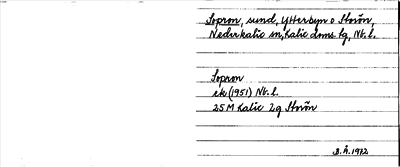 Sopron, sund, Ytterbyn o Storön,
Nederkalix sn, Kalix doms tg, Nb. l.
Sopron
ek (1951) Nb. l.
25 M Kalix 2g Storön
B. Å. 1972